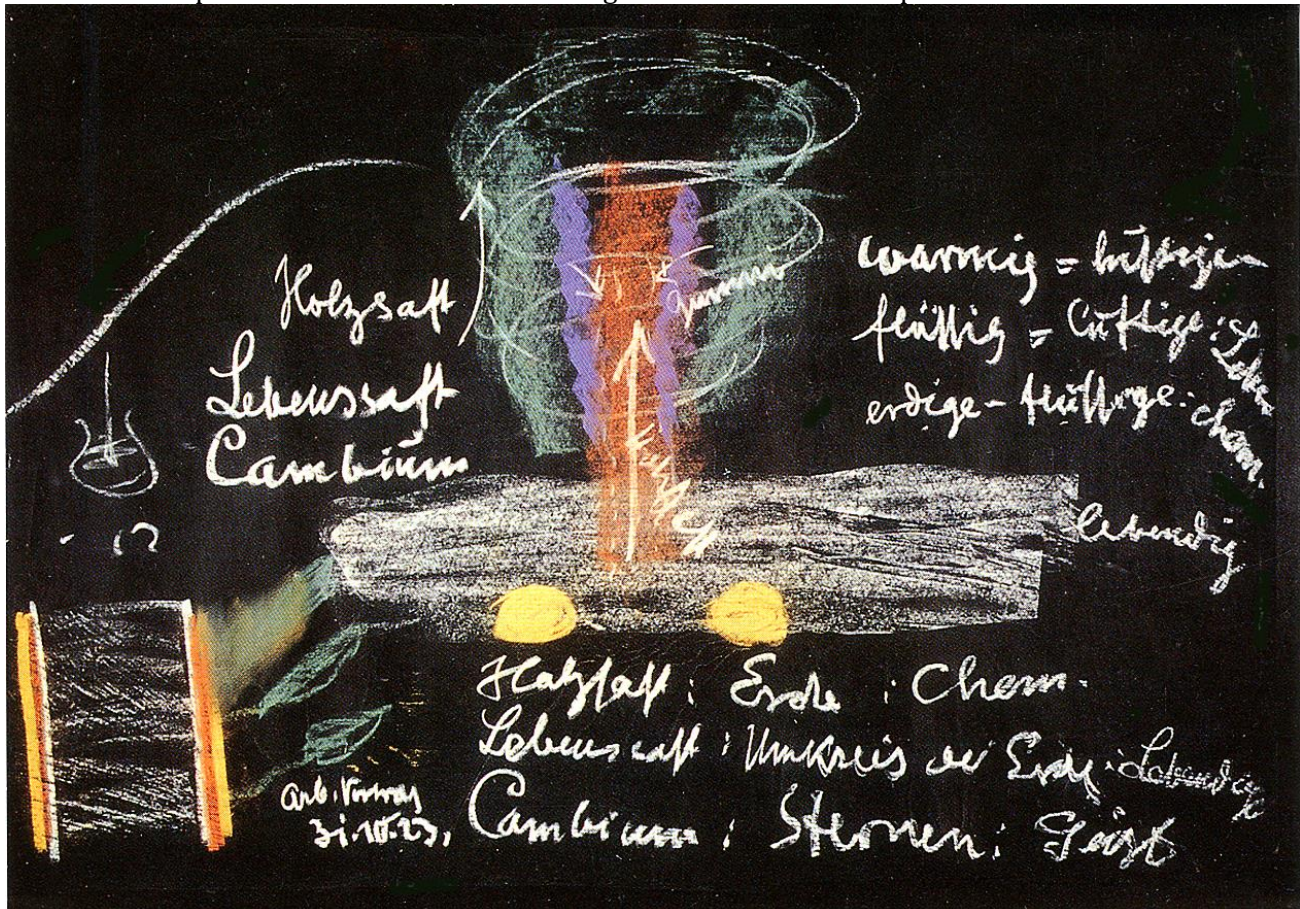 Holzsaft
Lebenssaft
Cambium
warmig =
flüssig = luftige: Leben
erdige - flüssige: chem.
lebendig
Holzsaft : Erde : Chem.
Lebenssaft : Umkreis der Erde :
Cambium : Sternen : Geist
Arb. Vortrag